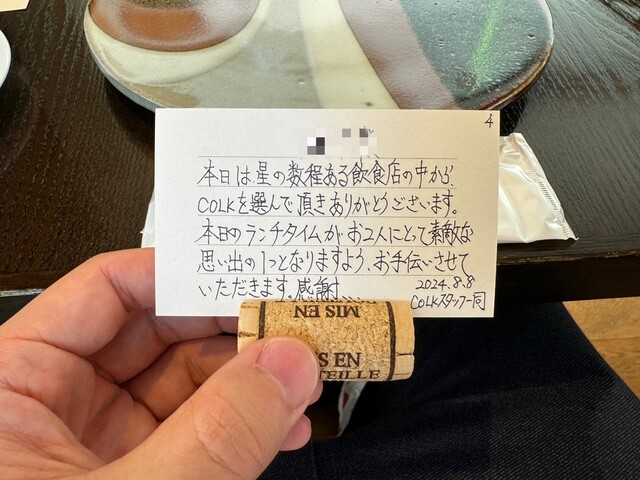 4
本日は、星の数程ある飲食店の中から、
COLKを選んで頂きありがとうございます。
本日のランチタイムがお2人にとって素敵な
思い出の1つとなりますよう、お手伝いさせて
いただきます。感謝
2024.8.8
COLKスタッフ一同
MIS EN
MIS EN
TEILLE